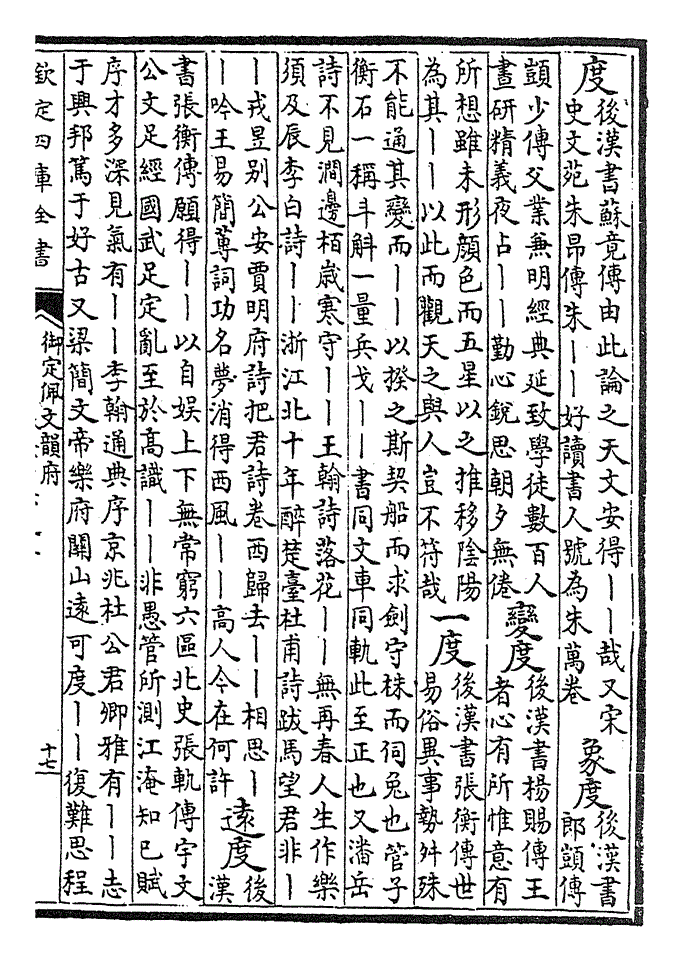 度後漢書蘇竟傳由此論之天文安得――哉又宋
史文苑朱昂傳朱――好讀書人號為朱萬卷
象度後漢書
郎顗傳
顗少傳父業兼明經典延致學徒數百人
晝研精義夜占――勤心銳思朝夕無倦
變度後漢書楊賜傳王
者心有所惟意有
所想雖未形顏色而五星以之推移陰陽
為其――以此而觀天之與人豈不符哉
一度後漢書張衡傳世
易俗異事勢舛殊
不能通其變而――以揆之斯契船而求劍守株而伺兔也管子
衡石一稱斗斛一量兵戈――書同文車同軌此至正也又潘岳
詩不見澗邊栢歲寒守――王翰詩落花――無再春人生作樂
須及辰李白詩――浙江北十年醉楚臺杜甫詩跋馬望君非―
―戎昱别公安賈明府詩把君詩卷西歸去――相思―
―吟王易簡蓴詞功名夢消得西風――高人今在何許
遠度後
漢
書張衡傳願得――以自娛上下無常窮六區北史張軌傳宇文
公文足經國武足定亂至於高識――非愚管所測江淹知已賦
序才多深見氣有――李翰通典序京兆杜公君卿雅有――志
于興邦篤于好古又梁簡文帝樂府關山遠可度――復難思程
欽定四庫全書
御定佩文韻府
十七